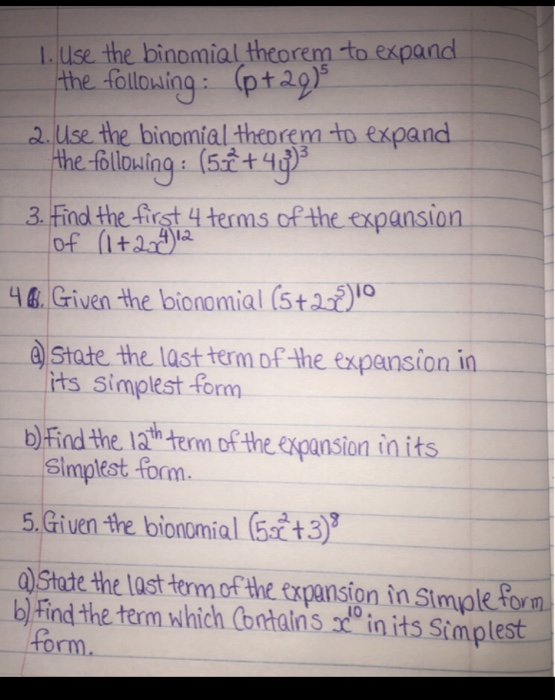 1. Use the binomial theorem to expand
the following: (p+2q)⁵
2. Use the binomial theorem to expand
the following: (5x²+4y³)³
3. Find the first 4 terms of the expansion
of (1+2x⁴)¹²
4. Given the bionomial (5+2x⁵)¹⁰
a) State the last term of the expansion in
its simplest form
b) Find the 12th term of the expansion in its
Simplest form.
5. Given the bionomial (5x²+3)⁸
a) State the last term of the expansion in Simple form
b) Find the term which Contains x¹⁰ in its Simplest
form.